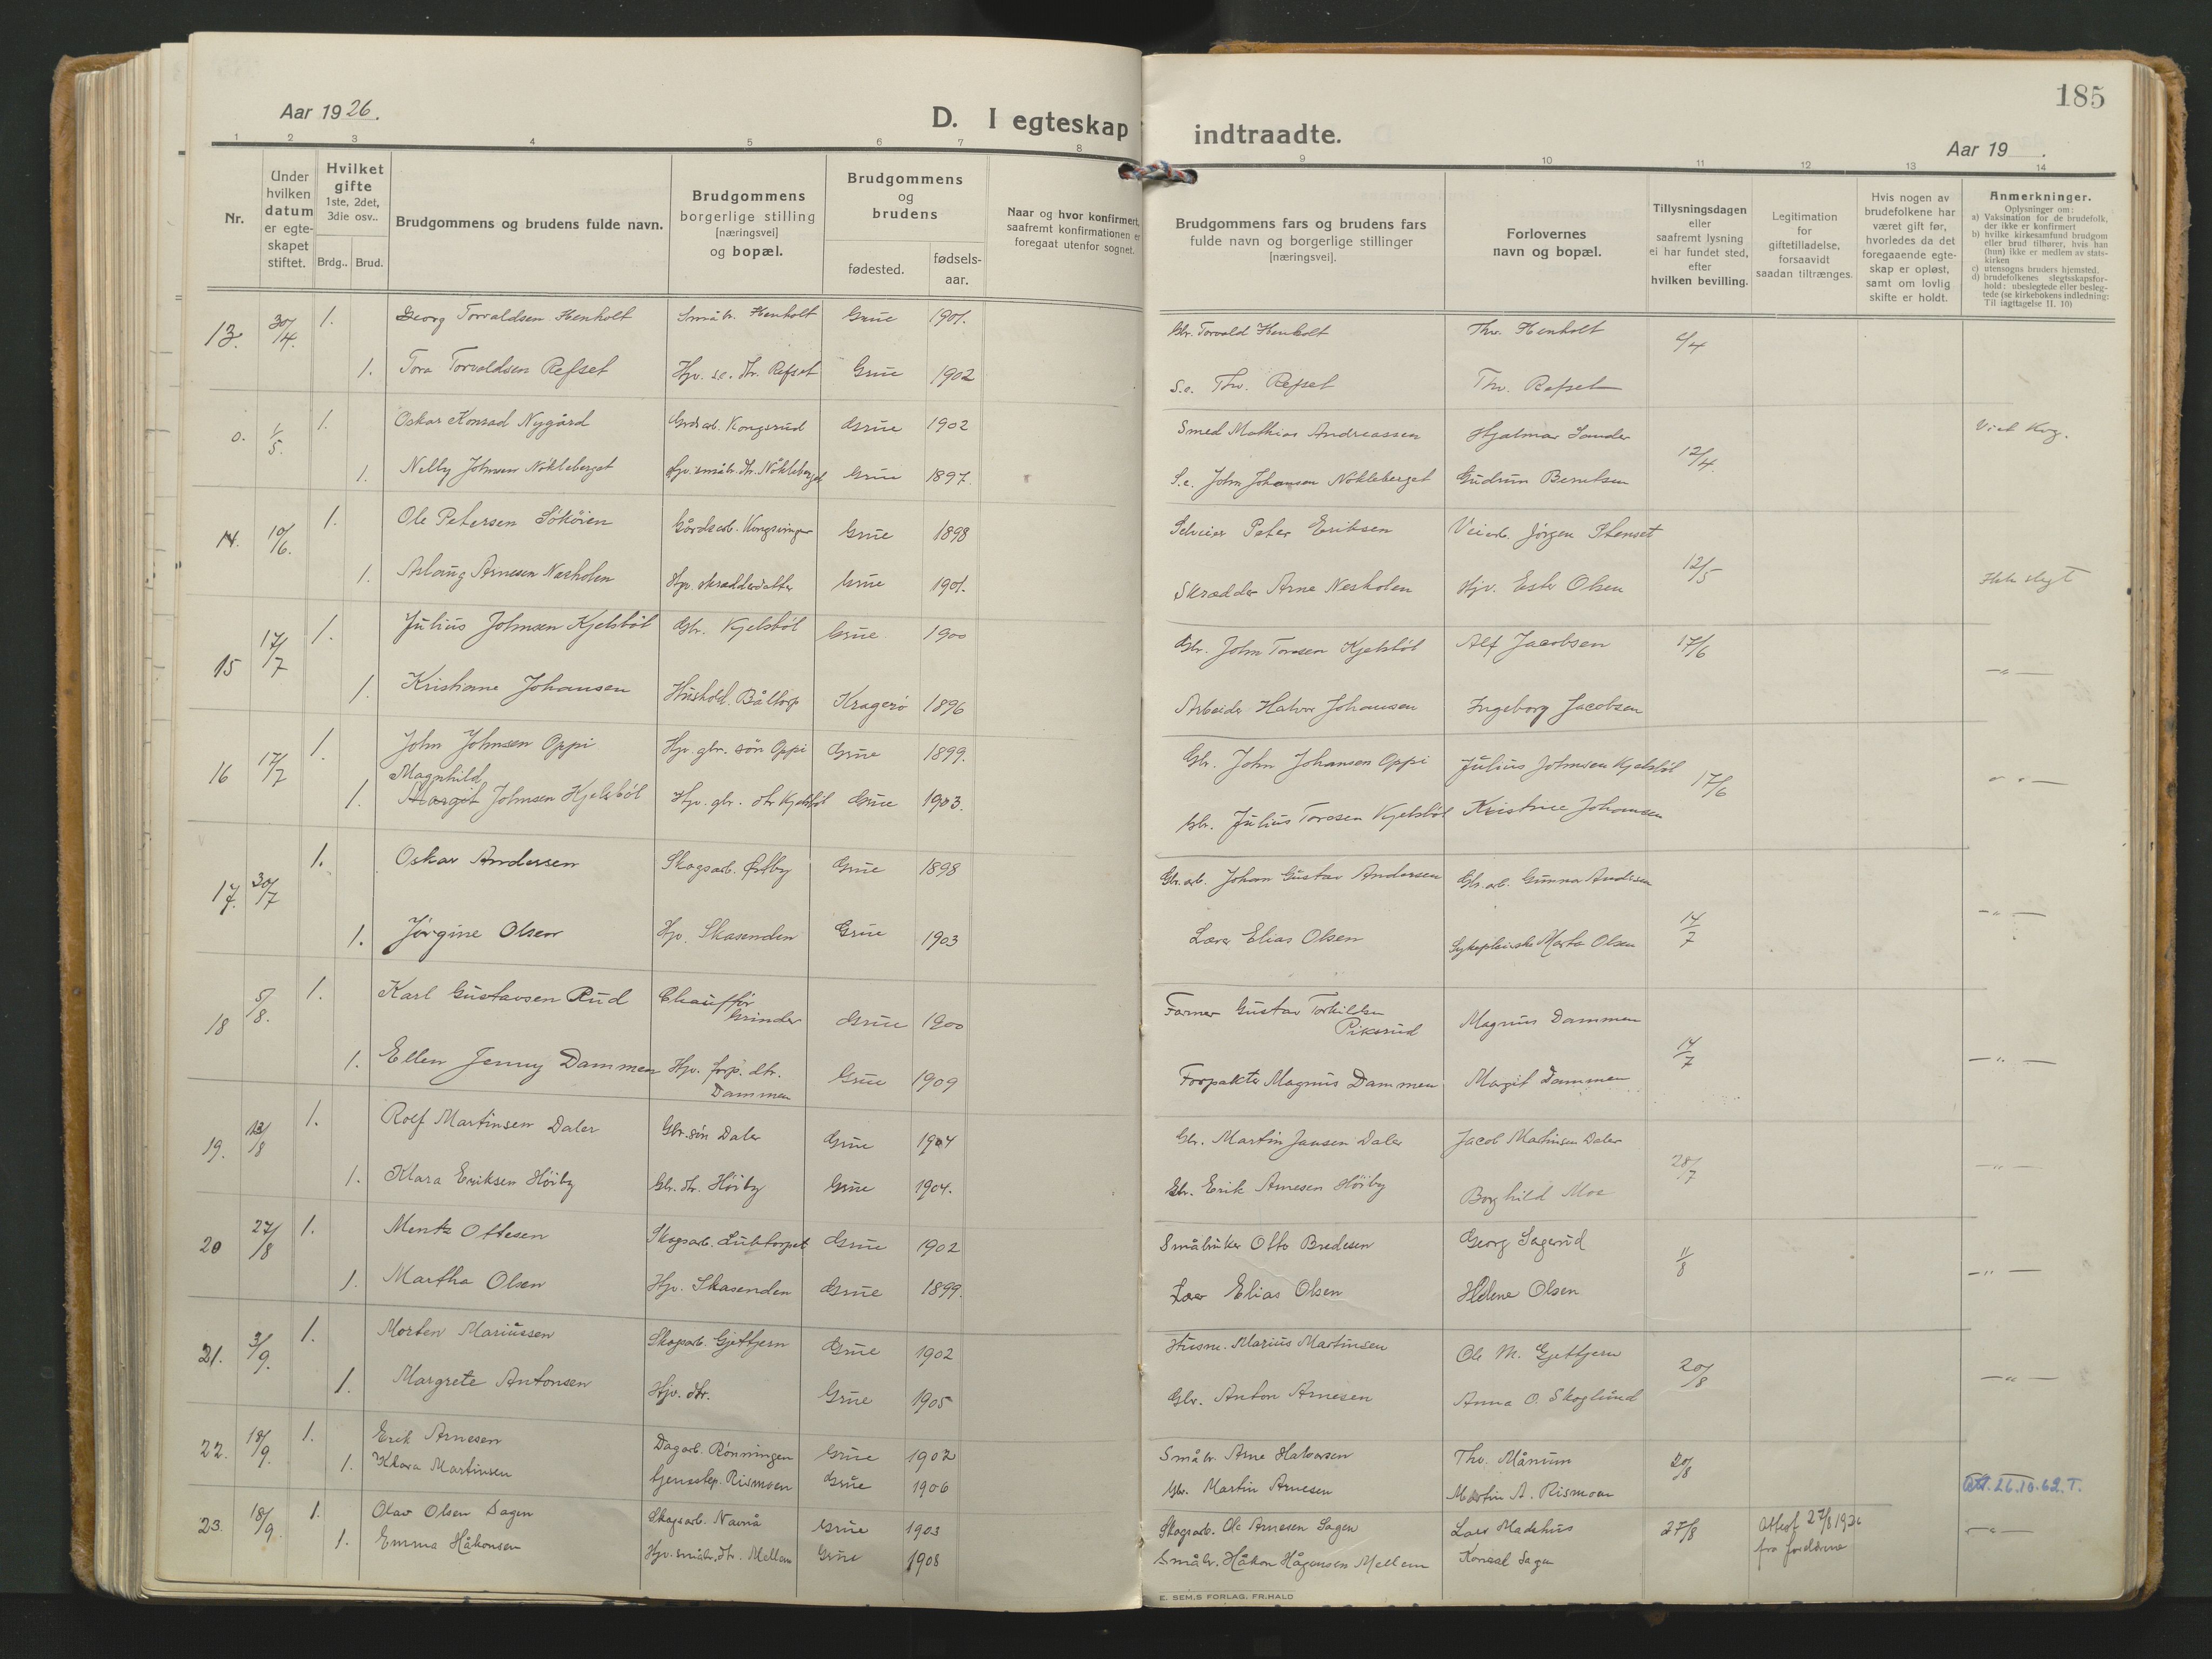 185
Aar 1926.
D. I egteskap indtraadte.
Aar 19 .
1 2 3 4 5 6 7 8 9 10 11 12 13 14
Nr.
Under hvilken datum er egte-skapet stiftet.
Hvilket gifte 1ste, 2det, 3die osv..
Brdg.. Brud.
Brudgommens og brudens fulde navn.
Brudgommens borgerlige stilling [næringsvei] og bopæl.
Brudgommens og brudens
fødested.
fødsels-aar.
Naar og hvor konfirmert, saafremt konfirmationen er foregaat utenfor sognet.
Brudgommens fars og brudens fars fulde navn og borgerlige stillinger [næringsvei].
Forlovernes navn og bopæl.
Tillysningsdagen eller saafremt lysning ei har fundet sted, efter hvilken bevilling.
Legitimation for giftetilladelse, forsaavidt saadan tiltrænges.
Hvis nogen av brudefolkene har været gift før, hvorledes da det foregaaende egte-skap er opløst, samt om lovlig skifte er holdt.
Anmerkninger.
Oplysninger om:
a) Vaksination for de brudefolk, der ikke er konfirmert
b) hvilke kirkesamfund brudgom eller brud tilhører, hvis han (hun) ikke er medlem av stats-kirken
c) utensogns bruders hjemsted.
d) brudefolkenes slegtsskapsfor-hold: ubeslegtede eller besleg-tede (se kirkebokens indledning: Til iagttagelse II. 10)
13. 30/4. 1. Georg Torvaldsen Henholt Småbr. Henholt Grue 1901. Gbr. Torvald Henholt Thv. Henholt 6/4
1. Tora Torvaldsen Refset Hjv. s.e. dtr. Refset Grue 1902 S.e. Thv. Refset Thv. Refset
0. 1/5. 1. Oskar Konrad Nygård Grdsarb. Kongsrud Grue 1902 Smed Mathias Andreassen Hjalmar Sander 12/4 Viet Kvg.
1. Nelly Johnsen Nökleberget Hjv. småbr. dtr. Nökleberget Grue 1897. S.e. John Johansen Nökleberget Gudrun Berntsen
14. 10/6. 1. Ole Petersen Sököien Gårdsarb. Kongsvinger Grue 1898 Selveier Peter Eriksen Veiarb. Jörgen Stenset 12/5 Ikke slegt
1. Aslaug Arnesen Nesholen Hjv. skrædderdatter Grue 1901. Skrædder Arne Nesholen Hjv. Ester Olsen
15 17/7 1. Julius Johnsen Kjelsböl Gbr. Kjelsböl Grue 1900 Gbr. John Torssen Kjelsböl Alf Jacobsen 17/6 —"—
1. Kristiane Johansen Hushold. Båltorp Kragerö 1896 Arbeider Halvor Johansen Ingeborg Jacobsen
16 17/7 1. John Johnsen Oppi Hjv. gbr. sön Oppi Grue 1899. Gbr. John Johansen Oppi Julius Johnsen Kjelsböl 17/6 —"—
Magnhild
1. Margit Johnsen Kjelsböl Hjv. gbr. dtr Kjelsböl Grue 1903. Gbr. Julius Torssen Kjelsböl Kristine Johansen
17. 30/7 1. Oskar Andersen Skogsarb. Östby Grue 1898 Gbr. arb. Johan Gustav Andersen Gbr. arb. Gunnar Andersen
1. Jörgine Olsen Hjv. Skasenden Grue 1903 Lærer Elias Olsen Sykepleierske Marta Olsen 14/7 —"—
18 5/8. 1. Karl Gustavsen Rud Chaufför Grinder Grue 1900 Farmer Gustav Torkildsen Piksrud Magnus Dammen
1. Ellen Jenny Dammen Hjv. forp. dtr. Dammen Grue 1909 Forpakter Magnus Dammen Margit Dammen 14/7 —"—
19. 13/8 1. Rolf Martinsen Daler Gbr. sön Daler Grue 1904 Gbr. Martin Jansen Daler Jacob Martinsen Daler 28/7 —"—
1. Klara Eriksen Höiby Gbr. dtr. Höiby Grue 1904. Gbr. Erik Arnesen Höiby Borghild Moe
20 27/8 1. Mentz Ottesen Skogsarb. Lubtorpet Grue 1902 Småbruker Otto Bredesen Georg Sagerud 11/8 —"—
1. Martha Olsen Hjv. Skasenden Grue 1899. Lærer Elias Olsen Helene Olsen
21. 3/9. 1. Morten Mariussen Skogsarb. Gjettjern Grue 1902 Husm. Marius Martinsen Ole M. Gjettjern 20/8 —"—
1. Margrete Antonsen Hjv. dtr. Grue 1905 Gbr. Anton Arnesen Anna O. Skoglund
22. 18/9. 1. Erik Arnesen Dagarb. Rönningen Grue 1902 Småbr. Arne Halvorsen Thv. Månum 20/8
1. Klara Martinsen tjenestep. Rismoen Grue 1906 Gbr. Martin Arnesen Martin A. Rismoen 26.10.62. T.
23. 18/9. 1. Olav Olsen Sagen Skogsarb. Navnå Grue 1903 Skogsarb. Ole Arnesen Sagen Lars Madshus 27/8 Attest 27/8 1926 fra foreldrene —"—
1. Emma Håkonsen Hjv. småbr. dtr. Mellem Grue 1908 Småbr. Håkon Hågensen Mellem Konrad Sagen
E. SEM.S FORLAG, FR.HALD